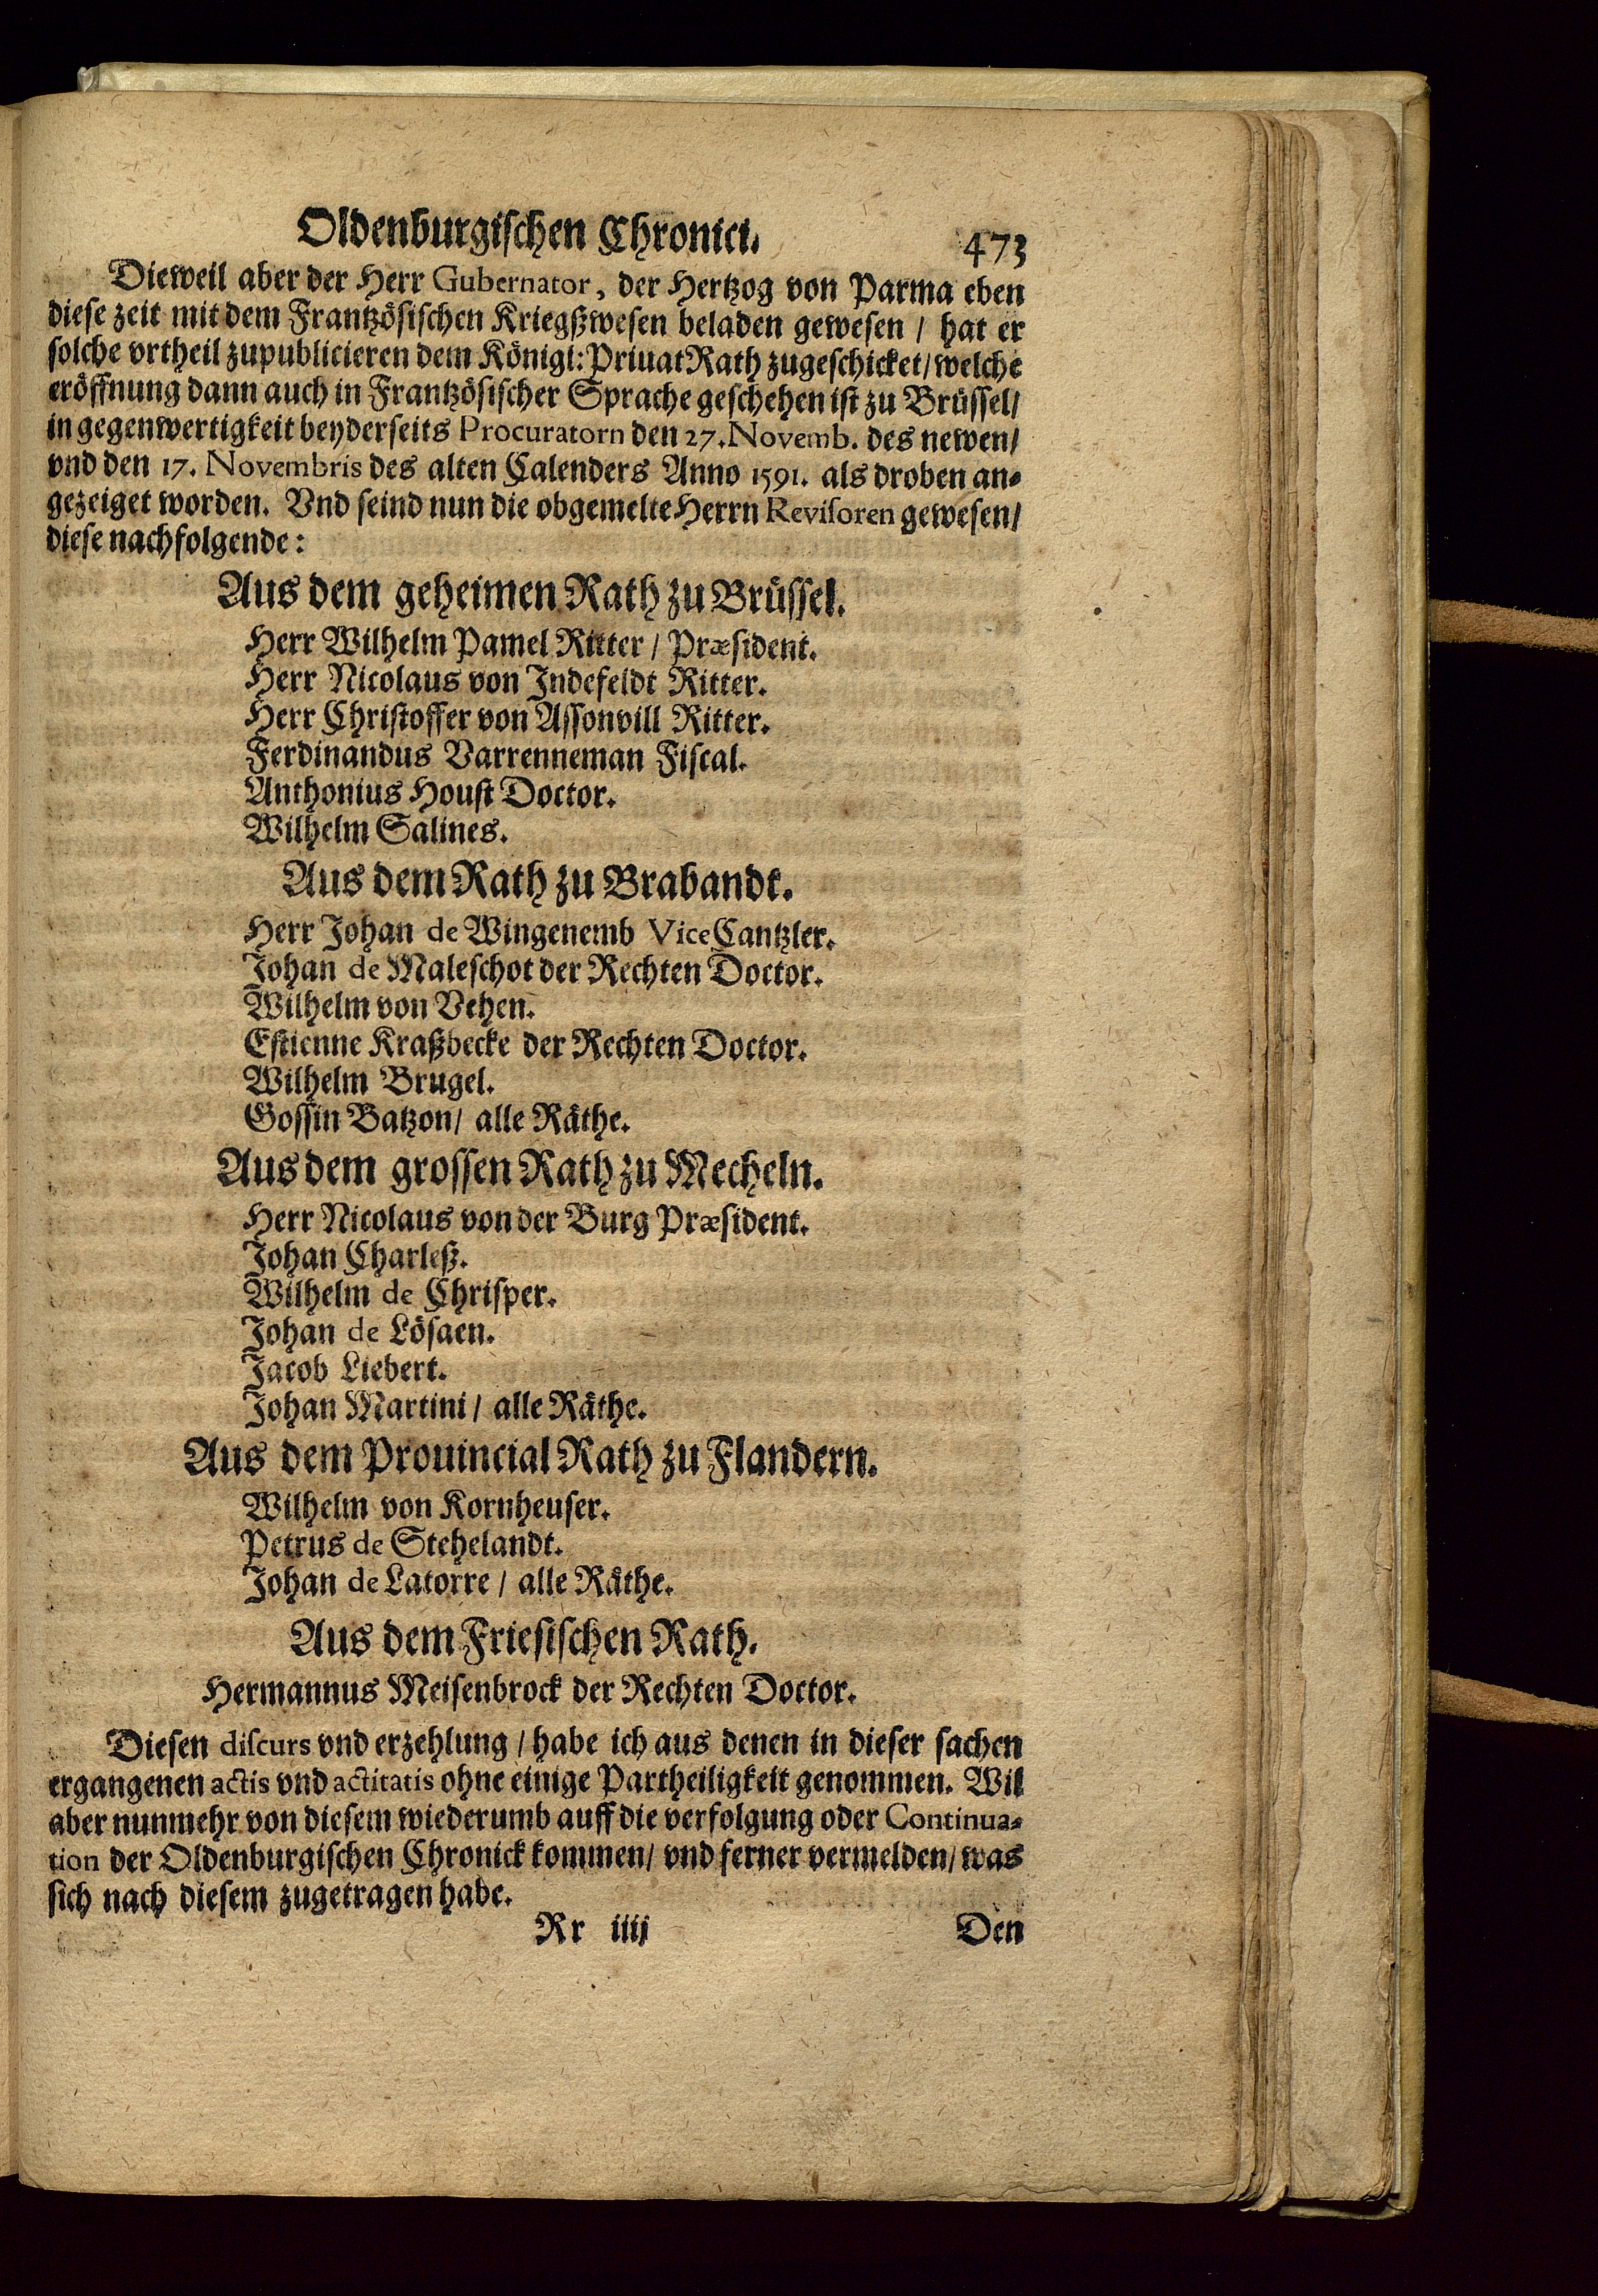 Oldenburgischen Chronici. 473
Dieweil aber der Herr Gubernator, der Hertzog von Parma eben
diese zeit mit dem Frantzösischen Kriegßwesen beladen gewesen / hat er
solche vrtheil zupublicieren dem Königl: PriuatRath zugeschicket / welche
eröffnung dann auch in Frantzösischer Sprache geschehen ist zu Brüssel /
in gegenwertigkeit beyderseits Procuratorn den 27. Novemb. des newen /
vnd den 17. Novembris des alten Calenders Anno 1591. als droben an-
gezeiget worden. Vnd seind nun die obgemelte Herrn Revisoren gewesen /
diese nachfolgende:
Aus dem geheimen Rath zu Brüssel.
Herr Wilhelm Pamel Ritter / Præsident.
Herr Nicolaus von Indefeldt Ritter.
Herr Christoffer von Assonvill Ritter.
Ferdinandus Varrenneman Fiscal.
Anthonius Houst Doctor.
Wilhelm Salines.
Aus dem Rath zu Brabandt.
Herr Johan de Wingenemb ViceCantzler.
Johan de Maleschot der Rechten Doctor.
Wilhelm von Vehen.
Estienne Kraßbecke der Rechten Doctor.
Wilhelm Brugel.
Gossin Batzon / alle Räthe.
Aus dem grossen Rath zu Mecheln.
Herr Nicolaus von der Burg Præsident.
Johan Charleß.
Wilhelm de Chrisper.
Johan de Lösaen.
Jacob Liebert.
Johan Martini / alle Räthe.
Aus dem Prouincial Rath zu Flandern.
Wilhelm von Kornheuser.
Petrus de Stehelandt.
Johan de Latorre / alle Räthe.
Aus dem Friesischen Rath.
Hermannus Meisenbrock der Rechten Doctor.
Diesen discurs vnd erzehlung / habe ich aus denen in dieser sachen
ergangenen actis vnd actitatis ohne einige Partheiligkeit genommen. Wil
aber nunmehr von diesem wiederumb auff die verfolgung oder Continua-
tion der Oldenburgischen Chronick kommen / vnd ferner vermelden / was
sich nach diesem zugetragen habe.
Rr iiij Den